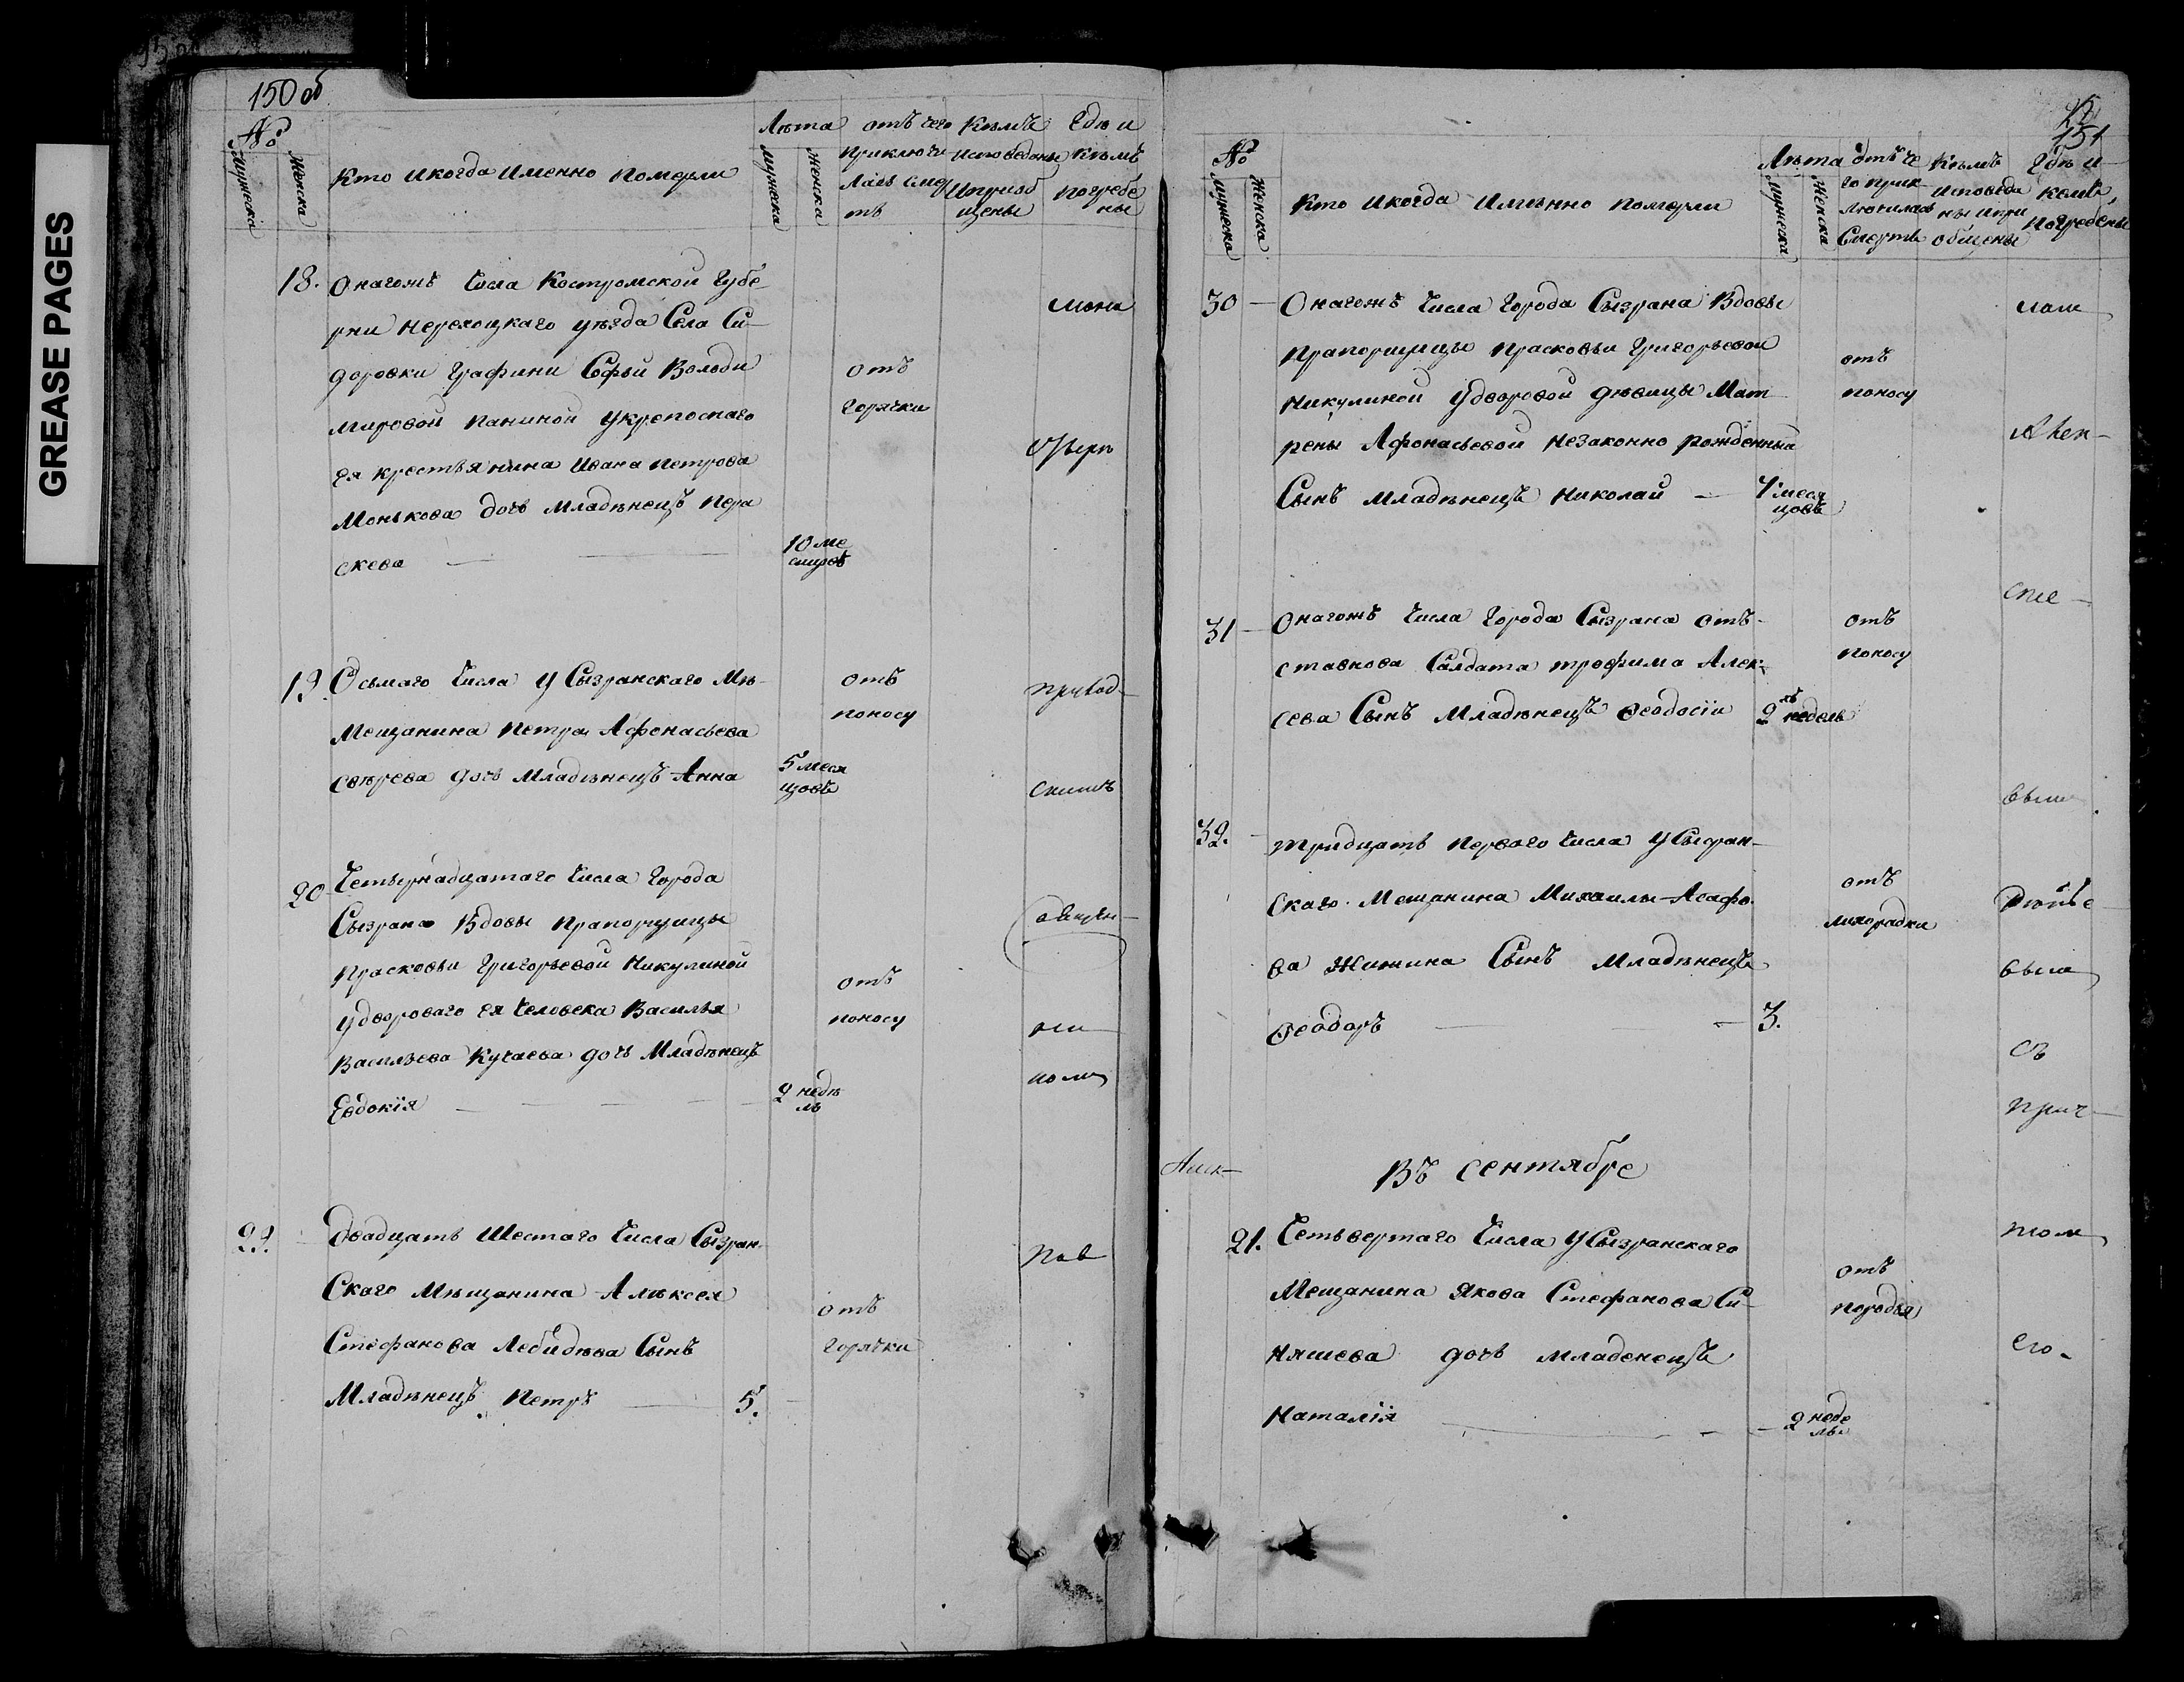 GREASE PAGES
150 об
№
Мужеска
Женска
Кто и когда именно померли
Лѣта
Мужеска
Женска
отъ чего
приключи
лась смер
ть
Кѣмъ
исповеданы
и приоб
щены
Где и
кѣмъ
погребе
ны
18. Онагожъ числа Костромской губе-
рни Нерехоцкаго уѣзда Села Си-
доровки графини Софьи Володи
мировой Паниной у крепоснаго
ея крестьянина Ивана Петрова
Монькова дочь младѣнецъ Пера
скева
10 ме
сицовъ
отъ
горячки
19. Осьмаго числа у Сызранскаго Мѣ-
мещанина Петра Афонасьева
свѣрева дочь младѣнецъ Анна
5 меся
цовъ
отъ
поносу
20 Четырнадцатаго числа города
Сызрана Вдовы прапорщицы
Прасковьи Григорьевой Никулиной
у двороваго ея человека Василья
Васильева Кучаева дочь Младѣнецъ
Евдокія
2 недѣ
ль
отъ
поносу
29. Двадцать шестаго числа Сызран-
скаго мѣщанина Алѣксея
Стефанова Лебидѣва Сынъ
Младѣнецъ Петръ 5.
отъ
горячки
приход-
скимъ
пав
151
№
Мужеска
Женска
Кто и когда имѣнно померли
Лѣта
Мужеска
Женска
отъ че
го прик-
лючилась
Смерть
Кѣмъ
исповеда
ны и при
общены
Где и
кемъ
погребены
30 Онагожъ числа города Сызрана Вдовы
прапорщицы Прасковьи Григорьевой
Никулиной у дворовой дѣвицы Мат
рены Афонасьевой незаконно рожденный
Сынъ младѣнецъ Николай
7 меся
цовъ
отъ
поносу
31 Онагожъ числа города Сызрана отъ-
ставнова Салдата Трофима Алек-
сева Сынъ младѣнецъ Феодосіи
2хъ недель
отъ
поносу
32. Тридцать перваго числа у Сызран-
скаго мещанина Михаилы Асафо
ва Жинина Сынъ младѣнецъ
Феодоръ 3.
отъ
лихорадки
Въ сентябре
21. Четьвертаго числа у Сызранскаго
мещанина Якова Стефанова Си-
няшева дочь младенецъ
Наталія
2 неде
ль
отъ
породы
Алек-
съ
прич-
том
его-